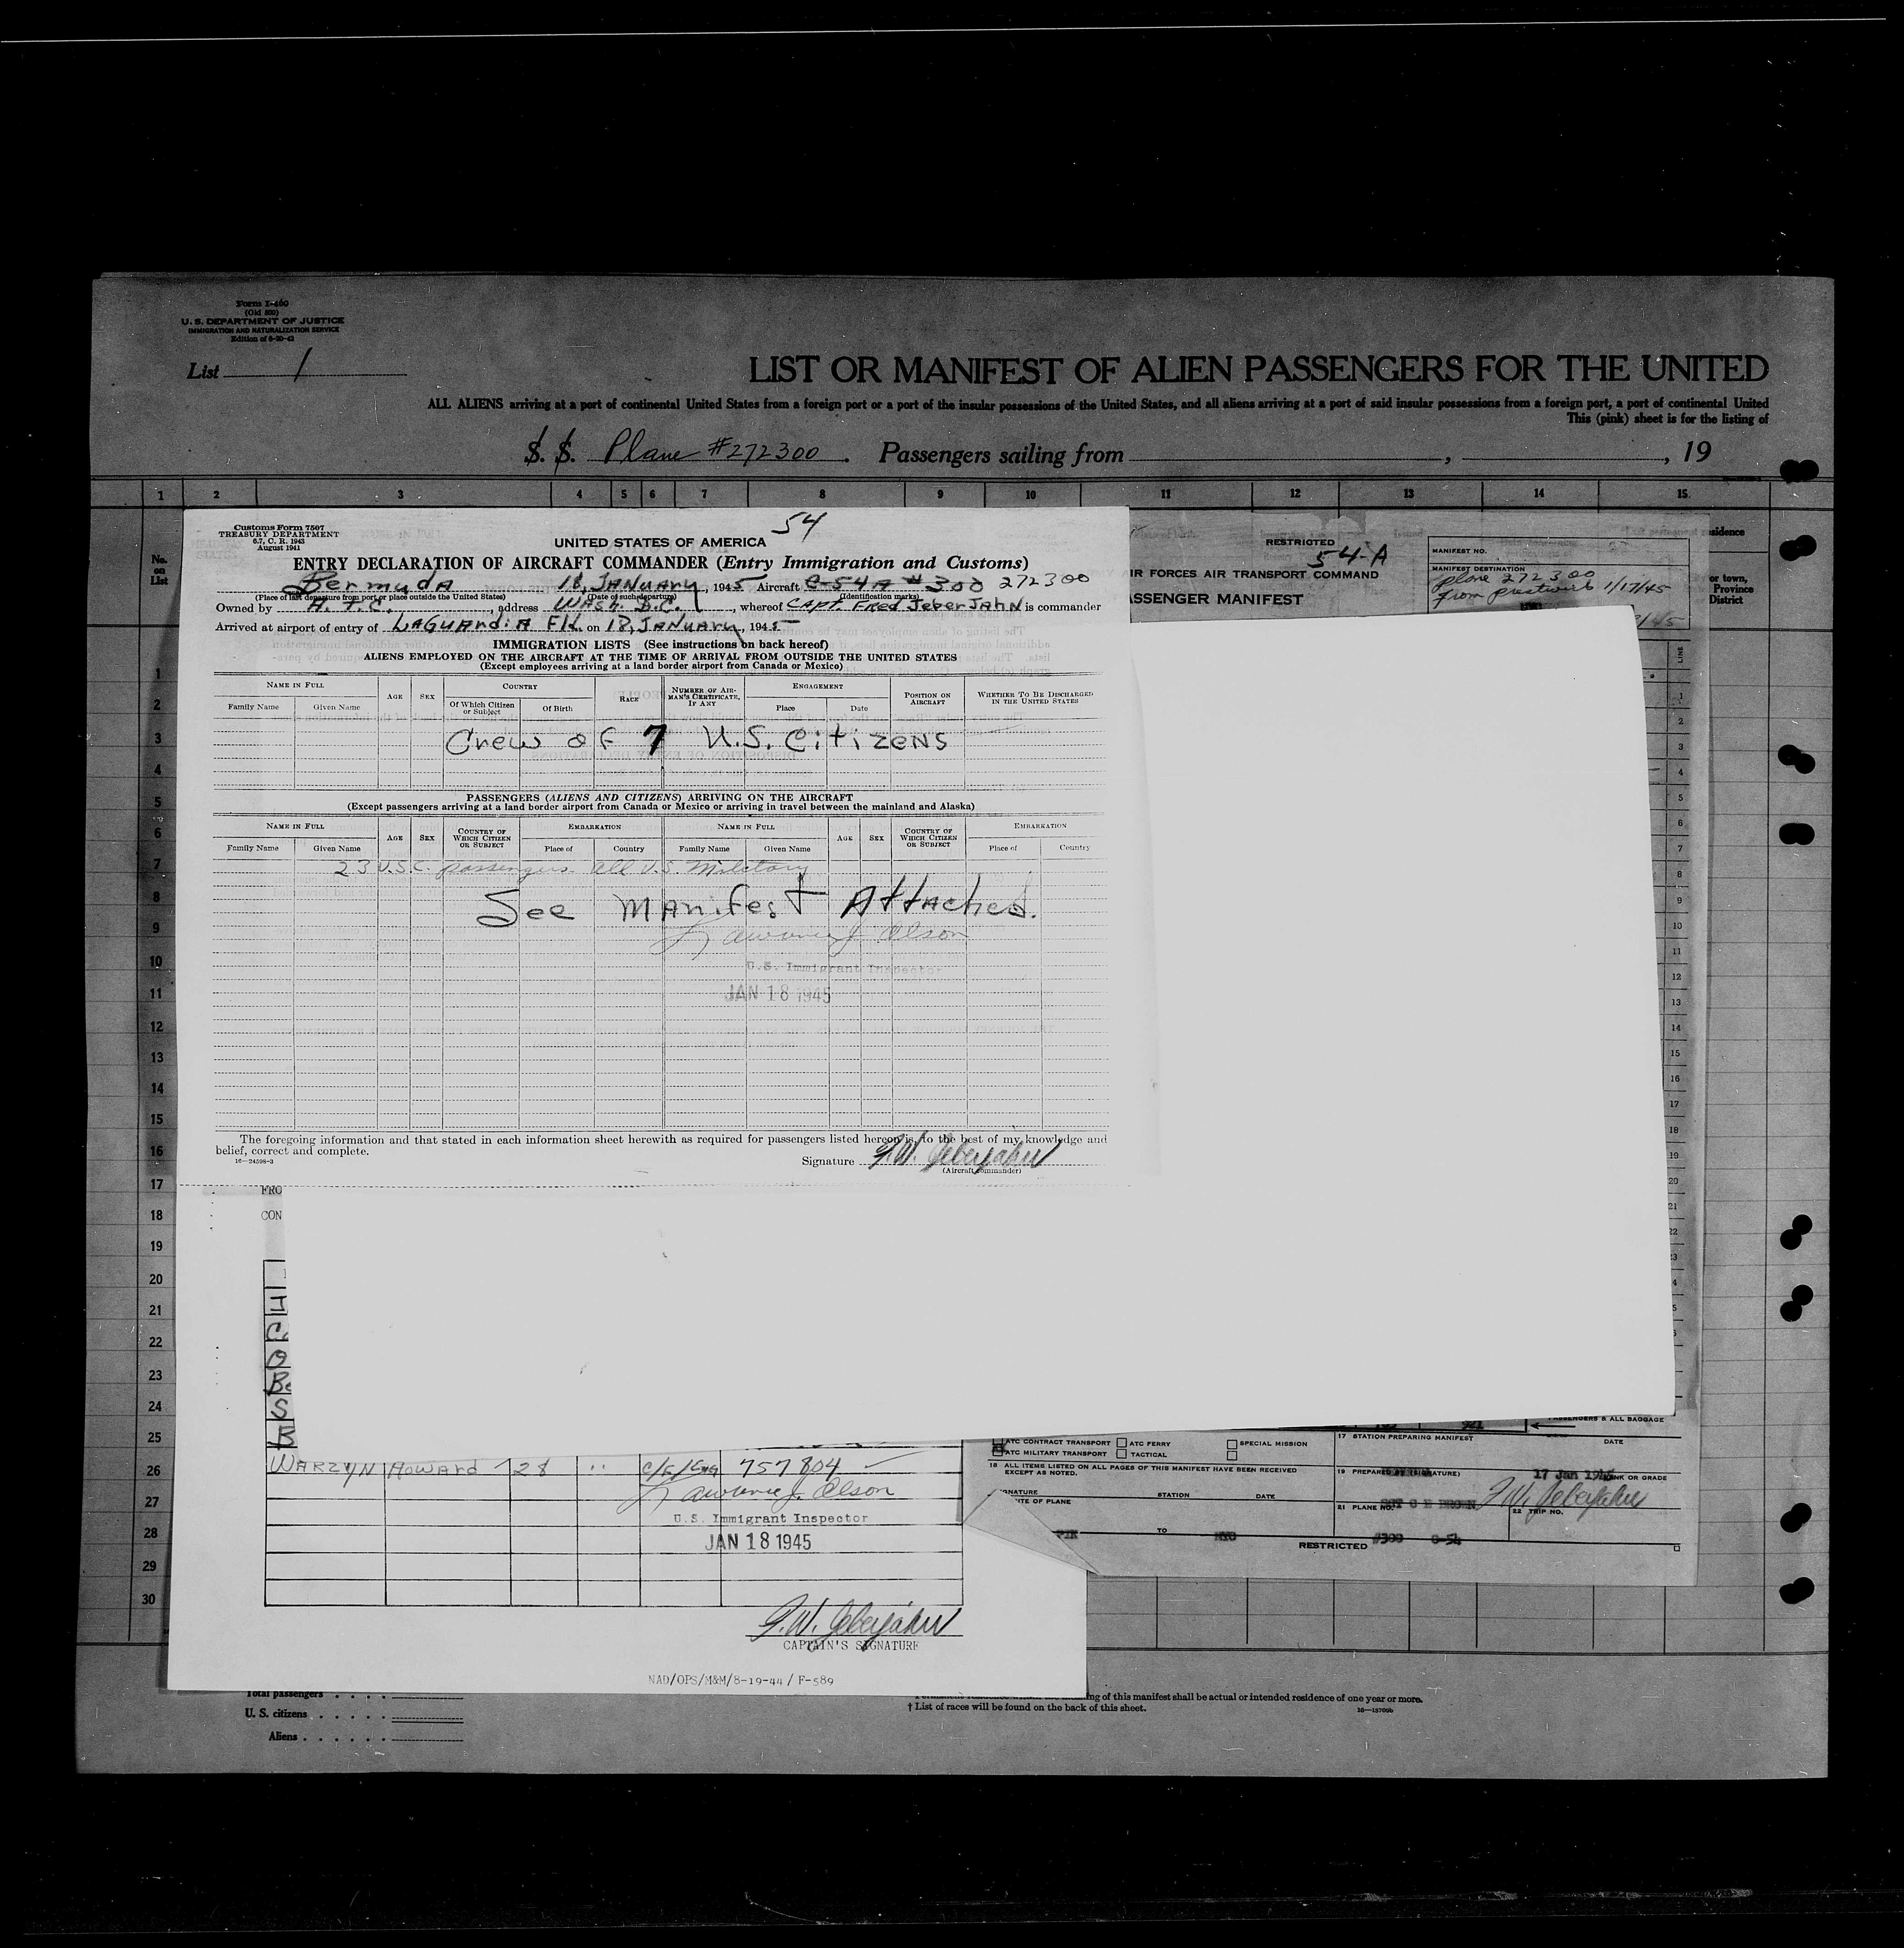 Form I-460
(Old 500)
U. S. DEPARTMENT OF JUSTICE
IMMIGRATION AND NATURALIZATION SERVICE
List 1
LIST OR MANIFEST OF ALIEN PASSENGERS FOR THE UNITED
ALL ALIENS arriving at a port of continental United States from a foreign port or a port of the insular possessions of the United States, and all aliens arriving at a port of said insular possessions from a foreign port, a port of continental United
This (pink) sheet is for the listing of
S. S. Plane #272300. Passengers sailing from , , 19
1 2 3 4 5 6 7 8 9 10 11 12 13 14 15
No. on List
54
Customs Form 7507
TREASURY DEPARTMENT
6.7, C. R. 1943
August 1941
UNITED STATES OF AMERICA
ENTRY DECLARATION OF AIRCRAFT COMMANDER (Entry Immigration and Customs)
Bermuda 18, JANUARY, 1945 Aircraft C-54A # 300 272300
(Place of last departure from port or place outside the United States) (Date of such departure) (Identification marks)
Owned by A. T. C., address WAsh. D.C., whereof CApt. Fred JeberJahn is commander
Arrived at airport of entry of LAGUArdiA Fld. on 18, JANUARY, 1945
IMMIGRATION LISTS (See instructions on back hereof)
ALIENS EMPLOYED ON THE AIRCRAFT AT THE TIME OF ARRIVAL FROM OUTSIDE THE UNITED STATES
(Except employees arriving at a land border airport from Canada or Mexico)
NAME IN FULL AGE SEX COUNTRY RACE NUMBER OF AIRMAN'S CERTIFICATE, IF ANY ENGAGEMENT POSITION ON AIRCRAFT WHETHER TO BE DISCHARGED IN THE UNITED STATES
Family Name Given Name Of Which Citizen or Subject Of Birth Place Date
Crew of 7 U.S. Citizens
PASSENGERS (ALIENS AND CITIZENS) ARRIVING ON THE AIRCRAFT
(Except passengers arriving at a land border airport from Canada or Mexico or arriving in travel between the mainland and Alaska)
NAME IN FULL AGE SEX COUNTRY OF WHICH CITIZEN OR SUBJECT EMBARKATION NAME IN FULL AGE SEX COUNTRY OF WHICH CITIZEN OR SUBJECT EMBARKATION
Family Name Given Name Place of Country Family Name Given Name Place of Country
23 U.S.C. passengers all U.S. Military
See Manifest Attached.
Lawrence J. Olson
U.S. Immigrant Inspector
JAN 18 1945
The foregoing information and that stated in each information sheet herewith as required for passengers listed hereon is, to the best of my knowledge and
belief, correct and complete.
16—24598-3
Signature F.W. Jeberjahn
(Aircraft commander)
RESTRICTED
54-A
IR FORCES AIR TRANSPORT COMMAND
ASSENGER MANIFEST
MANIFEST NO.
MANIFEST DESTINATION
plane 272300
from prestwick 1/17/45
/45
sidence
or town,
Province
District
LINE
FRO
CON
WARZYN Howard 28 " C/E/Eng 757804
Lawrence J. Olson
U.S. Immigrant Inspector
JAN 18 1945
F.W. Jeberjahn
CAPTAIN'S SIGNATURE
NAD/OPS/M&M/8-19-44 / F-589
921
PASSENGERS & ALL BAGGAGE
ATC CONTRACT TRANSPORT ATC FERRY SPECIAL MISSION
ATC MILITARY TRANSPORT TACTICAL
17 STATION PREPARING MANIFEST DATE
18 ALL ITEMS LISTED ON ALL PAGES OF THIS MANIFEST HAVE BEEN RECEIVED
EXCEPT AS NOTED.
19 PREPARED BY (SIGNATURE) 17 Jan 1945 RANK OR GRADE
GNATURE STATION DATE
SGT G E BROWN F.W. Jeberjahn
21 PLANE NO. 22 TRIP NO.
TO NYC
#300 C-54
RESTRICTED
Total passengers
U. S. citizens
Aliens
ng of this manifest shall be actual or intended residence of one year or more.
† List of races will be found on the back of this sheet.